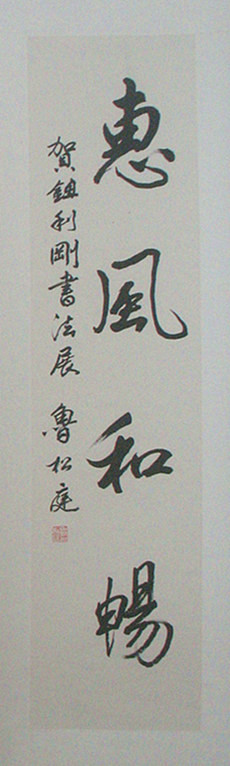 惠風和暢
賀鈕利剛書法展 魯松庭